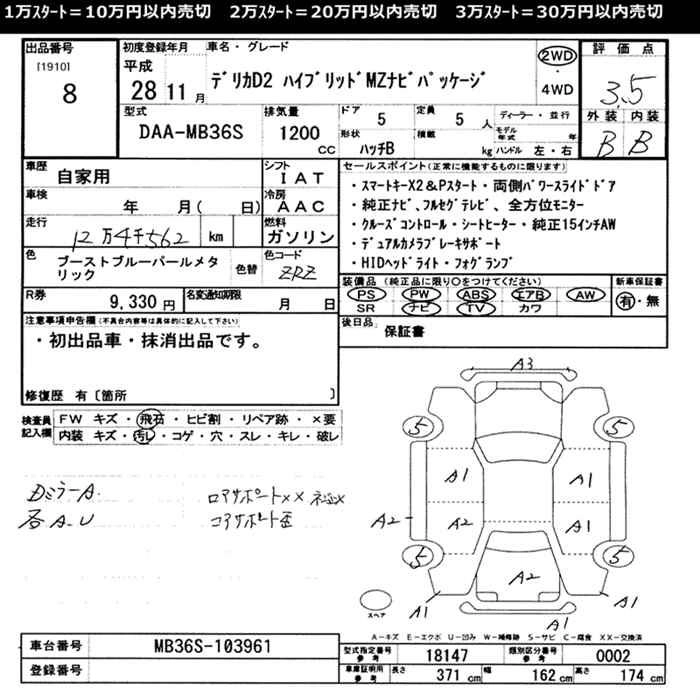 1万ｽﾀｰﾄ＝10万円以内売切　2万ｽﾀｰﾄ＝20万円以内売切　3万ｽﾀｰﾄ＝30万円以内売切
出品番号
[1910]
8
初度登録年月
平成
28 11 月
車名・グレード
デリカD2 ハイブリッドMZナビパッケージ
2WD
4WD
評価点
3.5
外装 内装
B B
型式
DAA-MB36S
排気量
1200
cc
ドア
5
形状
ハッチB
定員
5 人
積載
kg
ディーラー・並行
モデル年式 年
ハンドル 左・右
車歴
自家用
シフト
IAT
車検
年 月( 日)
冷房
AAC
走行
12万4千562 km
燃料
ガソリン
色
ブーストブルーパールメタリック
色替
色コード
ZRZ
R券
9,330 円
名変通知期限
月 日
セールスポイント(正常に機能するものに限ります)
・スマートキーX2&Pスタート・両側パワースライドドア
・純正ナビ､フルセグテレビ､全方位モニター
・クルーズコントロール・シートヒーター・純正15インチAW
・デュアルカメラブレーキサポート
・HIDヘッドライト・フォグランプ
装備品 (純正品に限り○をつけてください)
PS PW ABS エアB AW
SR ナビ TV カワ
新車保証書
有・無
後日品
保証書
注意事項申告欄(不具合内容等は具体的に記入して下さい)
・初出品車・抹消出品です。
修復歴 有〔箇所 〕
検査員記入欄
FW キズ・飛石・ヒビ割・リペア跡・×要
内装 キズ・汚レ・コゲ・穴・スレ・キレ・破レ
DミラーA.
各A.U
ロアサポート××
コアサポート歪
A3
5
5
A1
A1
A2
A2
A1
5
5
A2
A1
A1
A1
スペア
A－キズ E－エクボ U－凹み W－補修跡 S－サビ C－腐食 XX－交換済
車台番号
MB36S-103961
登録番号
型式指定番号参考
18147
類別区分番号参考
0002
車庫証明用参考
長さ 371 cm
幅 162 cm
高さ 174 cm